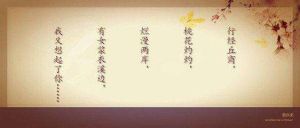 行经丘商，
桃花灼灼，
烂漫两岸，
有女浆衣溪边，
我又想起了你……